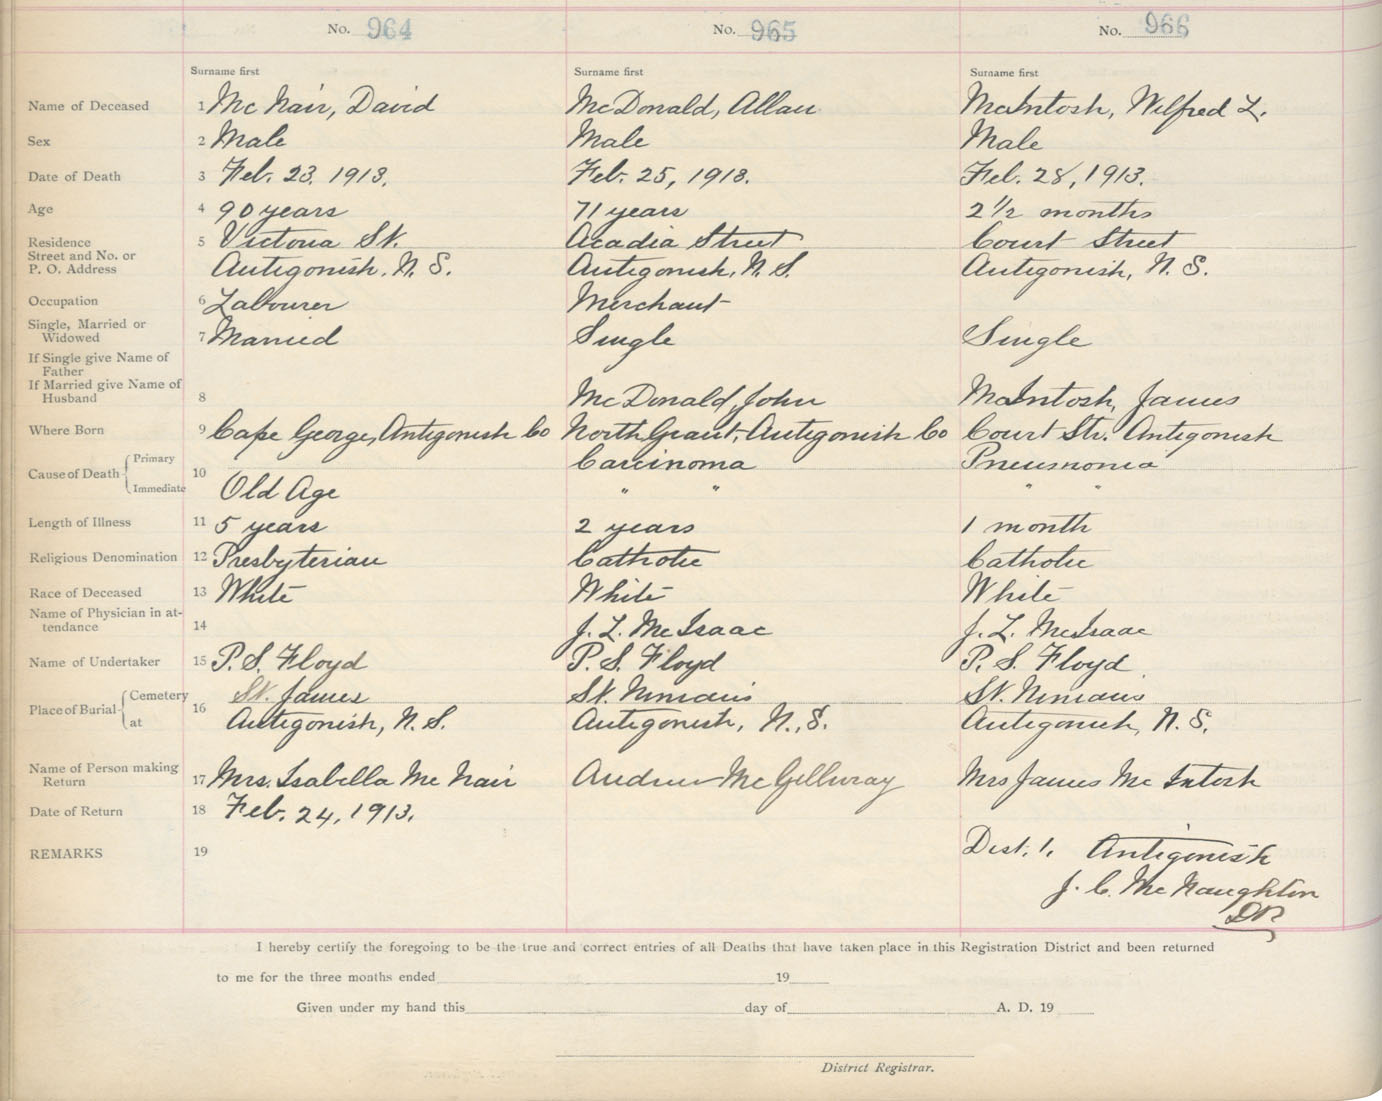 No. 964 No. 965 No. 966
Surname first Surname first Surname first
Name of Deceased 1 McNair, David McDonald, Allan McIntosh, Wilfred L.
Sex 2 Male Male Male
Date of Death 3 Feb. 23. 1913. Feb. 25, 1913. Feb. 28, 1913.
Age 4 90 years 71 years 2 1/2 months
Residence 5 Victoria St. Acadia Street Court Street
Street and No. or
P. O. Address Antigonish, N. S. Antigonish, N. S. Antigonish, N. S.
Occupation 6 Labourer Merchant
Single, Married or
Widowed 7 Married Single Single
If Single give Name of
Father
If Married give Name of
Husband 8 McDonald, John McIntosh, James
Where Born 9 Cape George, Antigonish Co North Grant, Antigonish Co Court Str. Antigonish
Cause of Death Primary 10 Carcinoma Pneumonia
Immediate Old Age " " " "
Length of Illness 11 5 years 2 years 1 month
Religious Denomination 12 Presbyterian Catholic Catholic
Race of Deceased 13 White White White
Name of Physician in at-
tendance 14 J. L. McIsaac J. L. McIsaac
Name of Undertaker 15 P. S. Floyd P. S. Floyd P. S. Floyd
Place of Burial Cemetery 16 St. James St. Ninians St. Ninians
at Antigonish, N. S. Antigonish, N. S. Antigonish, N. S.
Name of Person making
Return 17 Mrs. Isabella McNair Andrew McGillivray Mrs James McIntosh
Date of Return 18 Feb. 24, 1913.
REMARKS 19 Dist. 1. Antigonish
J. C. McNaughton
DR
I hereby certify the foregoing to be the true and correct entries of all Deaths that have taken place in this Registration District and been returned
to me for the three months ended 19
Given under my hand this day of A. D. 19
District Registrar.